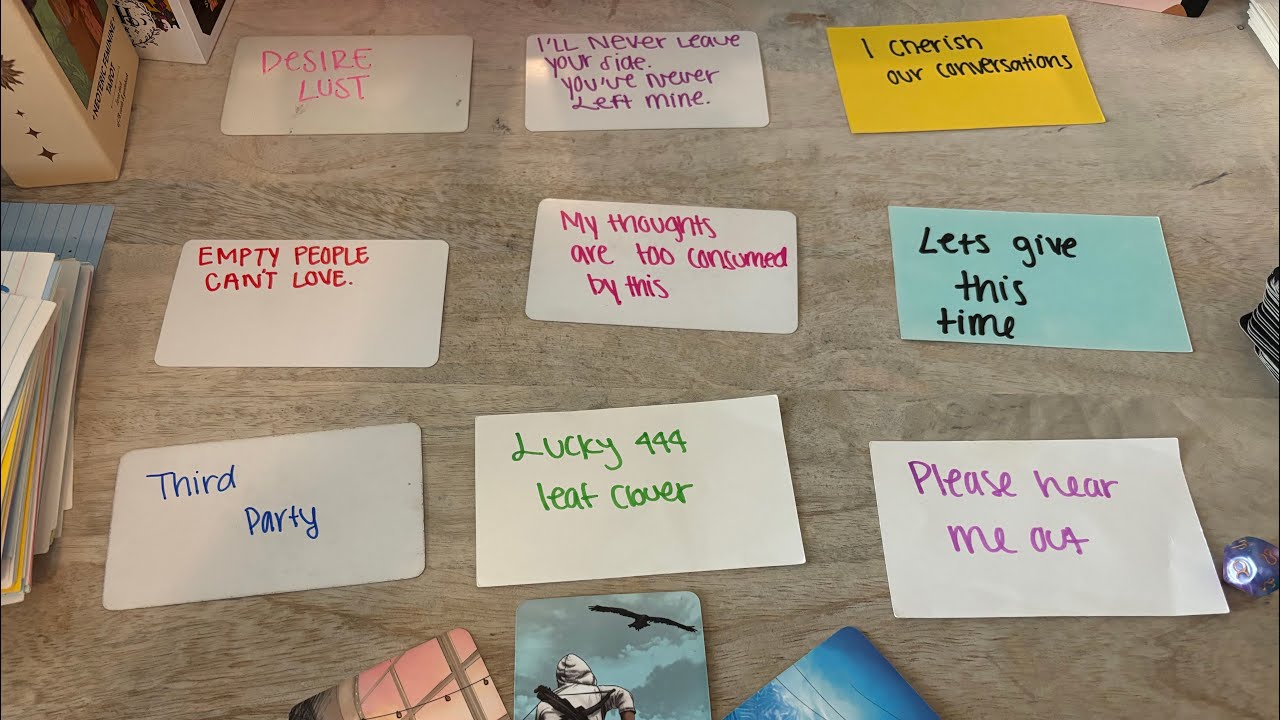 NEOTERIC FEMININITY
TAROT
DESIRE
LUST
I'LL NEVER LEAVE
your side.
you've never
Left mine.
I cherish
our conversations
EMPTY PEOPLE
CAN'T LOVE.
My thoughts
are too consumed
by this
Lets give
this
time
Third
party
Lucky 444
leaf clover
Please hear
me out